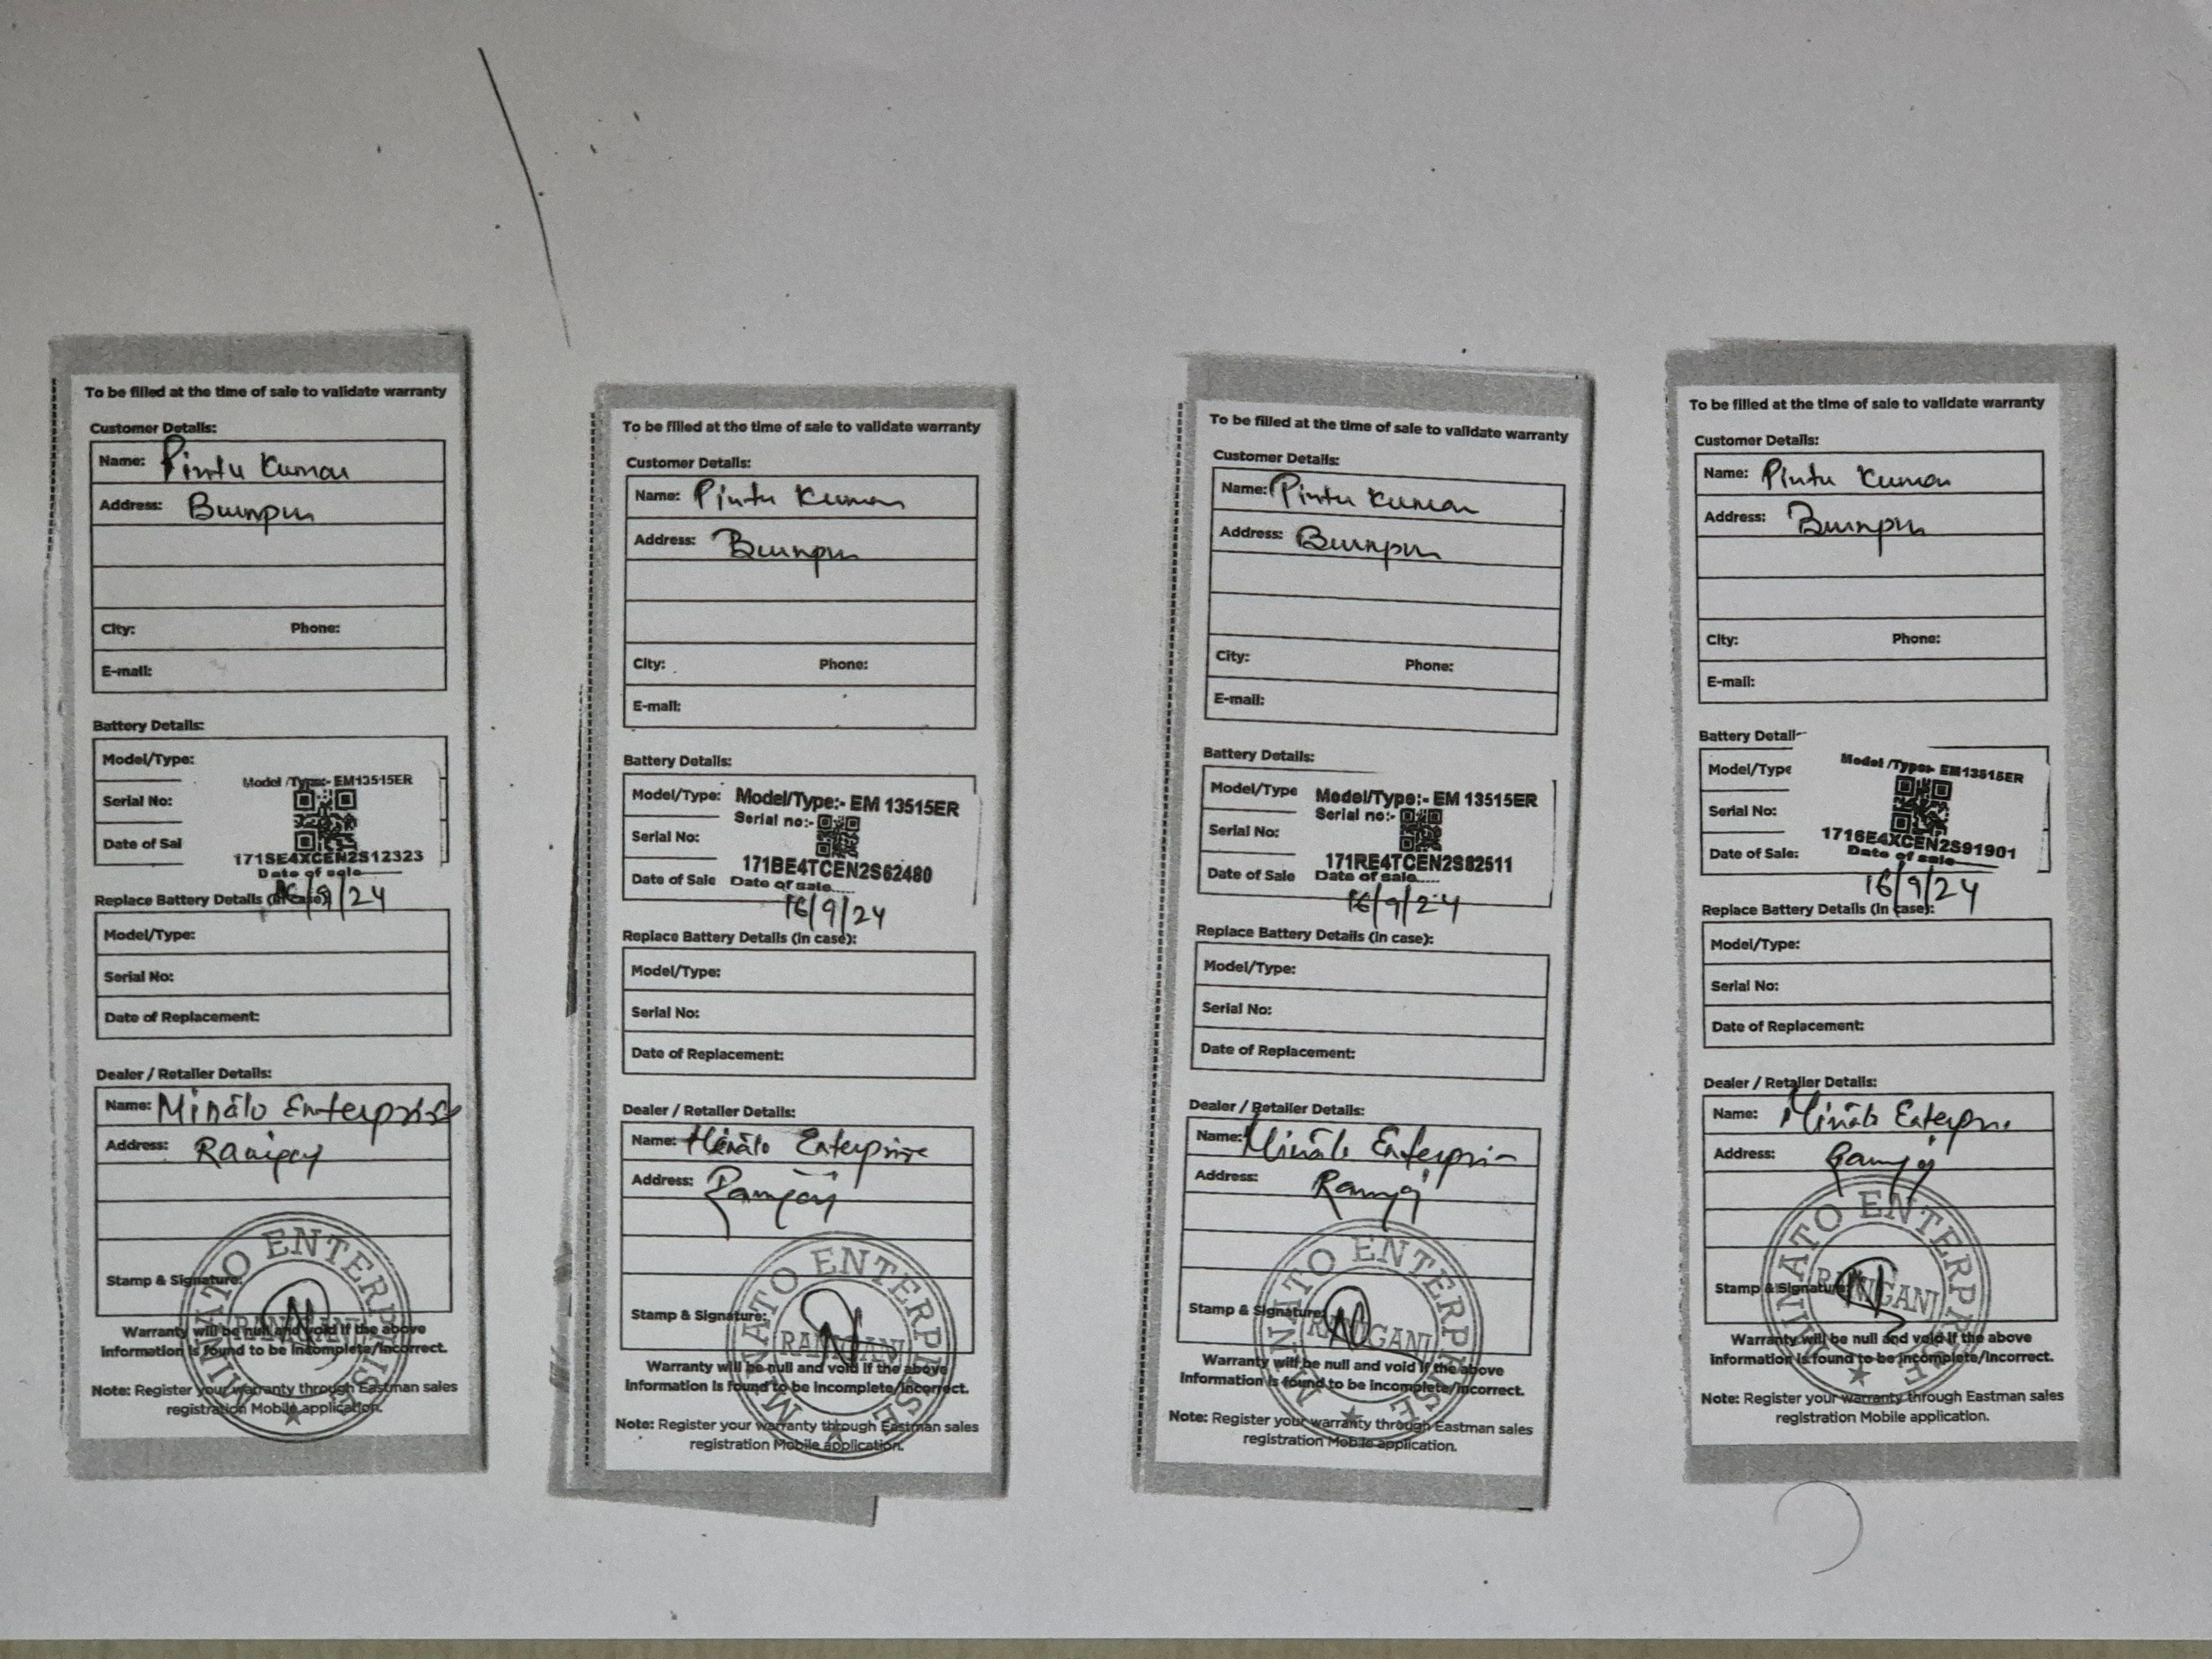 To be filled at the time of sale to validate warranty
Customer Details:
Name: Pintu Kumar
Address: Burnpur
City: Phone:
E-mail:
Battery Details:
Model/Type:
Model /Type:- EM13515ER
Serial No:
Date of Sal
171SE4XCEN2S12323
Date of sale
16/9/24
Replace Battery Details (in case):
Model/Type:
Serial No:
Date of Replacement:
Dealer / Retailer Details:
Name: Minato Enterprise
Address: Raniganj
MINATO ENTERPRISE
RANIGANJ
Stamp & Signature:
Warranty will be null and void if the above
information is found to be incomplete/incorrect.
Note: Register your warranty through Eastman sales
registration Mobile application.
To be filled at the time of sale to validate warranty
Customer Details:
Name: Pintu Kumar
Address: Burnpur
City: Phone:
E-mail:
Battery Details:
Model/Type: Model/Type:- EM 13515ER
Serial no:-
Serial No:
171BE4TCEN2S62480
Date of Sale Date of sale.....
16/9/24
Replace Battery Details (in case):
Model/Type:
Serial No:
Date of Replacement:
Dealer / Retailer Details:
Name: Minato Enterprise
Address: Raniganj
MINATO ENTERPRISE
RANIGANJ
Stamp & Signature:
Warranty will be null and void if the above
information is found to be incomplete/incorrect.
Note: Register your warranty through Eastman sales
registration Mobile application.
To be filled at the time of sale to validate warranty
Customer Details:
Name: Pintu Kumar
Address: Burnpur
City: Phone:
E-mail:
Battery Details:
Model/Type Model/Type:- EM 13515ER
Serial no:-
Serial No:
171RE4TCEN2S82511
Date of Sale Date of sale.....
16/9/24
Replace Battery Details (in case):
Model/Type:
Serial No:
Date of Replacement:
Dealer / Retailer Details:
Name: Minato Enterprise
Address: Raniganj
MINATO ENTERPRISE
RANIGANJ
Stamp & Signature:
Warranty will be null and void if the above
information is found to be incomplete/incorrect.
Note: Register your warranty through Eastman sales
registration Mobile application.
To be filled at the time of sale to validate warranty
Customer Details:
Name: Pintu Kumar
Address: Burnpur
City: Phone:
E-mail:
Battery Detail
Model/Type
Model /Type:- EM13515ER
Serial No:
1716E4XCEN2S91901
Date of Sale: Date of sale
16/9/24
Replace Battery Details (in case):
Model/Type:
Serial No:
Date of Replacement:
Dealer / Retailer Details:
Name: Minato Enterprise
Address: Raniganj
MINATO ENTERPRISE
RANIGANJ
Stamp & Signature
Warranty will be null and void if the above
information is found to be incomplete/incorrect.
Note: Register your warranty through Eastman sales
registration Mobile application.